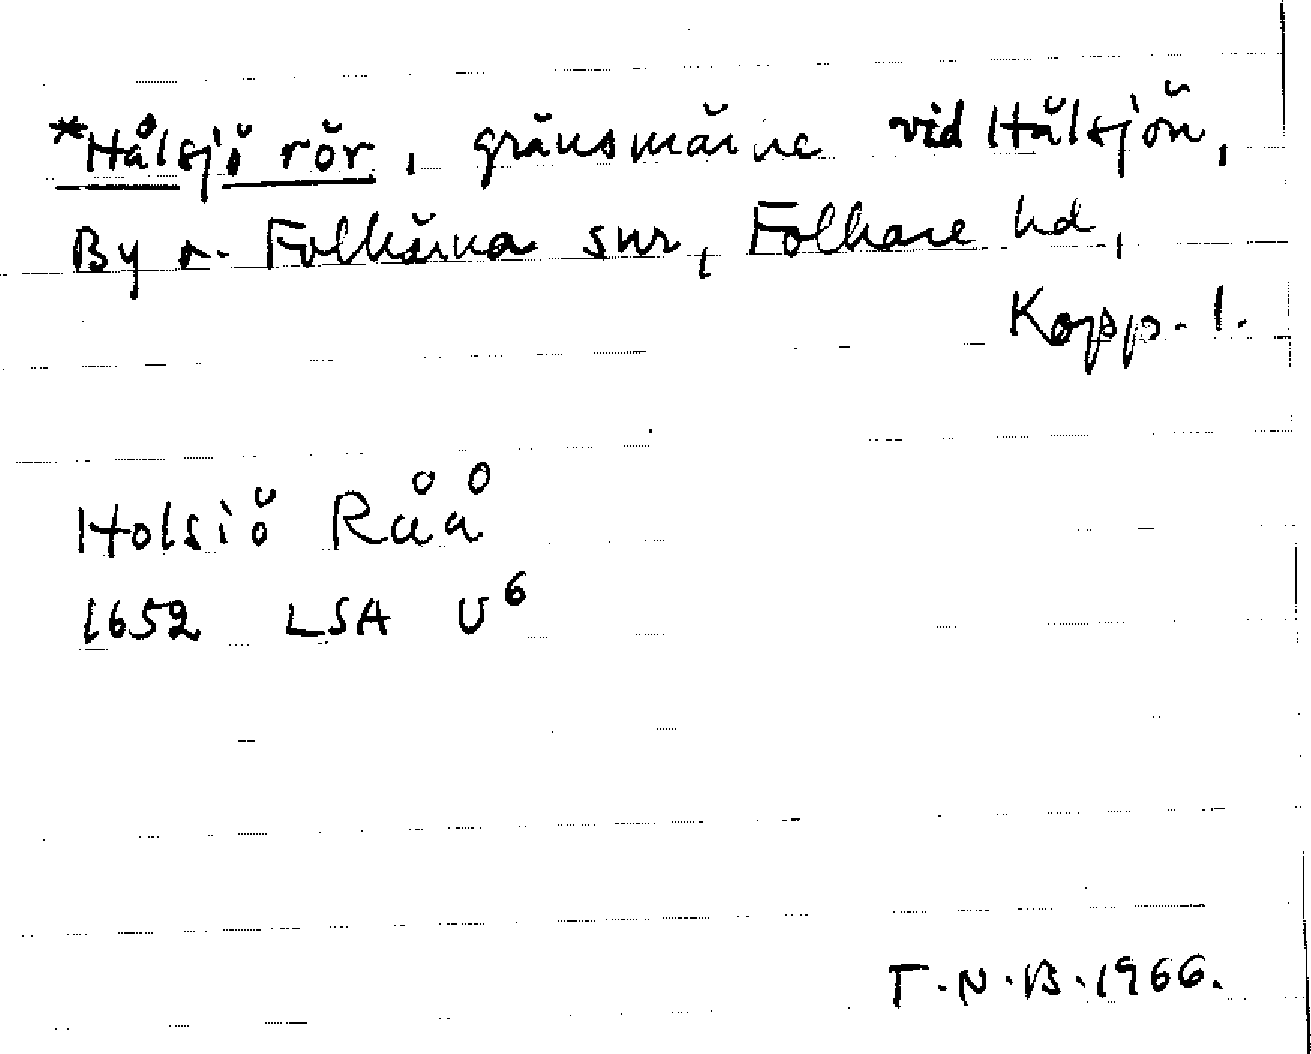 *Hålsjö rör, gränsmärke vid Hålsjön,
By o. Folkärna snr, Folkare hd,
Kopp. l.
Holsiö Råå
1652 LSA U⁶
T.N.B. 1966.